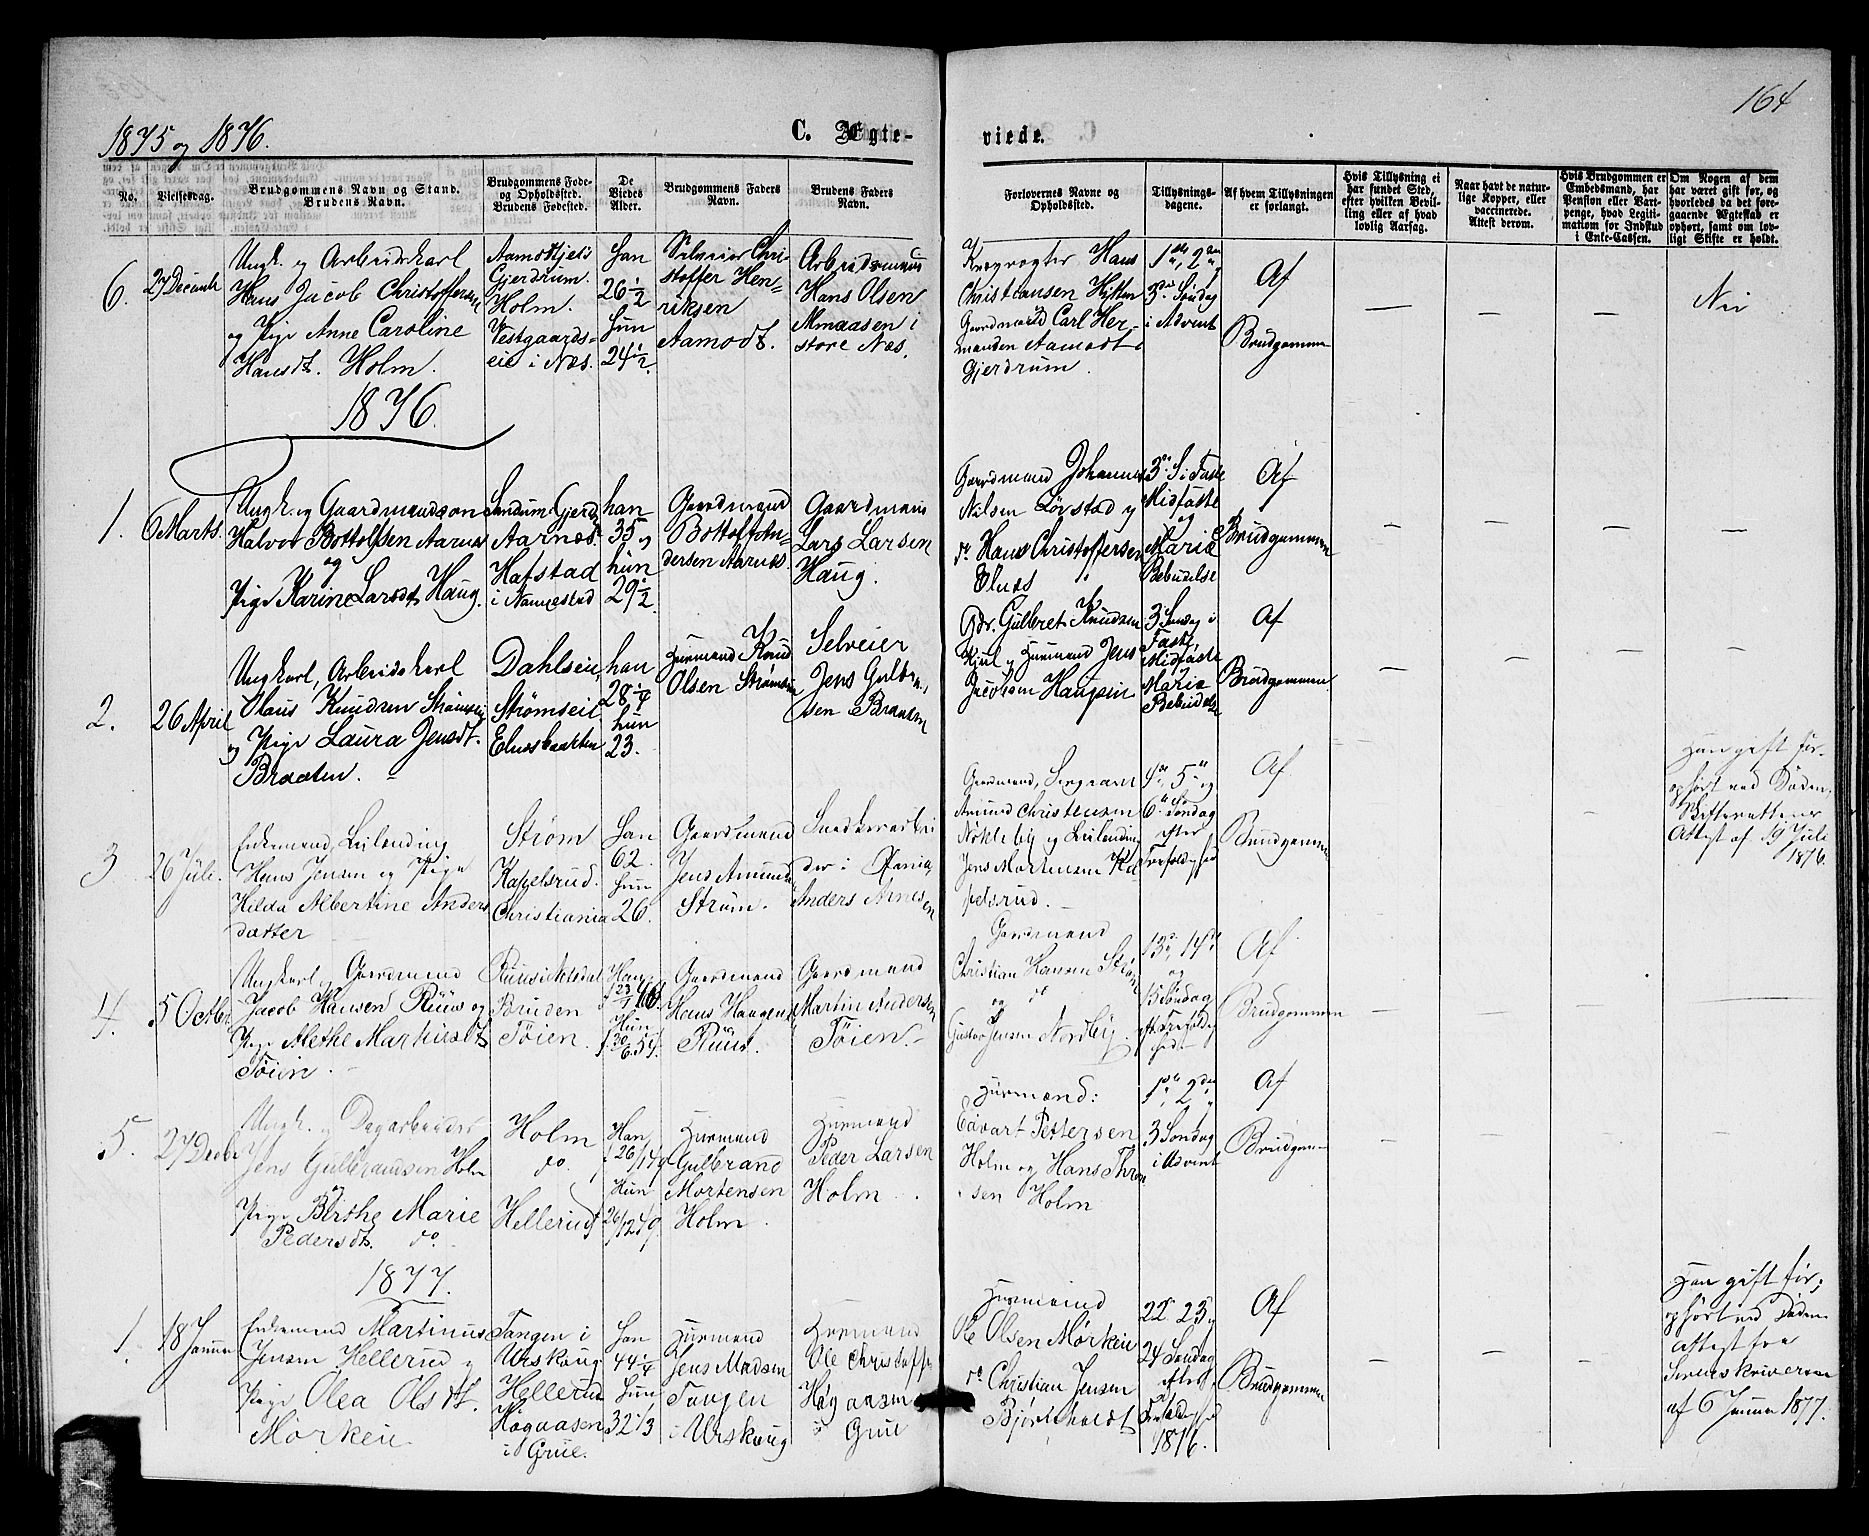 164
1875 og 1876.
C. Ægte-
viede.
No.
Vielsesdag.
Brudgommens Navn og Stand.
Brudens Navn.
Brudgommens Føde-
og Opholdssted.
Brudens Fødested.
De
Viedes
Alder.
Brudgommens Faders
Navn.
Brudens Faders
Navn.
Forlovernes Navne og
Opholdssted.
Tillysnings-
dagene.
Af hvem Tillysningen
er forlangt.
Hvis Tillysning ei
har fundet Sted,
efter hvilken Bevil-
ling eller af hvad
lovlig Aarsag.
Naar havt de natur-
lige Kopper, eller
vaccinerede.
Attest derom.
Hvis Brudgommen er
Embedsmand, har
Pension eller Vart-
penge, hvad Legiti-
mation for Indskud
i Enke-Cassen.
Om Nogen af dem
har været gift før, og
hvorledes da det fore-
gaaende Ægteskab er
ophørt, samt om lov-
ligt Skifte er holdt.
6.
27 Decemb
Ungk. og Arbeidskarl
Hans Jacob Christoffersen
og Pige Anne Caroline
Hansdt. Holm.
Aamotkjels
Gjerdrum.
Holm.
Vestgaards-
eie i Næs.
Han
26 1/2
Hun
24 1/2.
Selveier Chri-
stoffer Hen-
riksen
Aamodt.
Arbeidsmand
Hans Olsen
Almaasen i
store Næs.
Hans
Christiansen
Gaardmand Carl Her-
manden Aamodt i
Gjerdrum.
1ste, 2den
3die Søndag
i Advent
Af
Brudgommen
—
—
—
Nei
1876.
1.
6 Marts.
Ungk. og Gaardmandssøn
Halvor Bottolfsen Aarnæs
og
Pige Karine Larsdt. Haug.
Sandum Gjerdr.
Aarnæs.
Hafstad
i Nannestad
han
35 og
hun
29 1/2.
Gaardmand
Bottolf An-
dersen Aarnæs.
Gaardmand
Lars Larsen
Haug.
Gaardmand Johannes
Nilsen Løvstad og
do. Hans Christoffersen
Elnæs
3die S. i Faste
Midfaste
og
Mariæ
Bebudelse
Af
Brudgommen
—
—
—
—
2.
26 April
Ungkarl, Arbeidskarl
Olaus Knudsen Strømseie
og Pige Laura Jensdt.
Braaten.
Dahlseie,
Strømseie
Elnæsbraaten
han
28 1/4
hun
23.
Huusmand Knud
Olsen Strømseie
Selveier
Jens Gulbran-
sen Braaten
Gdr. Gulbret Knudsen
Kjul og Huusmand Jens
Jacobsen Haugseie
3 Søndag i
Faste,
Midfaste
Mariæ
Bebudelse
Af
Brudgommen
—
—
—
—
3
26 Juli.
Enkemand, Leilending
Hans Jensen og Pige
Hilda Albertine Anders
datter
Strøm
Kapelsrud.
Christiania
Han
62.
Hun
26.
Gaardmand
Jens Amund.
Strøm.
Snedkerarbei
der i Xania,
Anders Arnesen
Gaardmand,
Amund Christensen
Nokleby og Leilending
Jens Mortensen Ka
pelsrud.
4de, 5te og
6te Søndag
efter
Trefoldighed
Af
Brudgommen
—
—
—
Han gift før.
ophørt ved Døden,
Skifterettens
Attest af 19 Juli
1876.
4.
5 Octbr
Ungkarl, Gaardmand
Jacob Hansen Ruus og
Pige Alethe Martinsdt.
Töien.
Bruden
Töien.
Han
f. 23/1 46.
Hun
f. 30/6. 54.
Gaardmand
Hans Haagens.
Ruus.
Gaardmand
Martin Andersen
Töien.
Gaardmand
Christian Hansen Strøm
og do
Gustav Jensen Nordby.
13de, 14de
og
15 Søndag
eft. Trefoldig
hed
Af
Brudgommen
—
—
—
—
5.
27 Decbr
Ungk. og Dagarbeider
Jens Gulbrandsen Holm
og
Pige Birthe Marie
Pedersdt. do.
Holm
do.
Hellerud
Han
f. 26/1 49
Hun
26/12 49.
Huusmand
Gulbrand
Mortensen
Holm.
Huusmand
Peder Larsen
Holm.
Huusmænd:
Edvart Pettersen
Holm og Hans Thron
sen Holm
1ste, 2den
3 Søndag
i Advent
Af
Brudgommen
—
—
—
—
1877.
1.
18 Januar
Enkemand Martinus
Jensen Hellerud og
Pige Olea Olsdt.
Mørkeie
Tangen i
Urskoug
Hellerud
Høgaasen
i Grue.
Han
44 1/4
Hun
32 1/3
Huusmand
Jens Madsen
Tangen
i Urskoug
Huusmand
Ole Christoffs.
Høgaasen
i Grue
Huusmænd
Ole Olsen Mørkeie
do Christian Jensen
Bjørtholdt
22 23 og
24 Søndag
efter
Trefoldighed
1876.
Af
Brudgommen
—
—
—
Han gift før,
ophørt ved Døden
Attest fra
Sorenskriveren
af 6 Januar 1877.